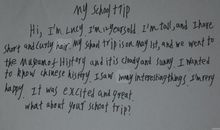 My school trip
Hi, I'm Lucy, I'm 12 years old I'm tall, and I have
short and curly hair. My school trip is on May 1st, and we went to
the Museum of History and it's cloudy and sunny. I wanted
to know chinese history, I saw many interesting things, I'm very
happy. It was excited and great.
what about your school trip?